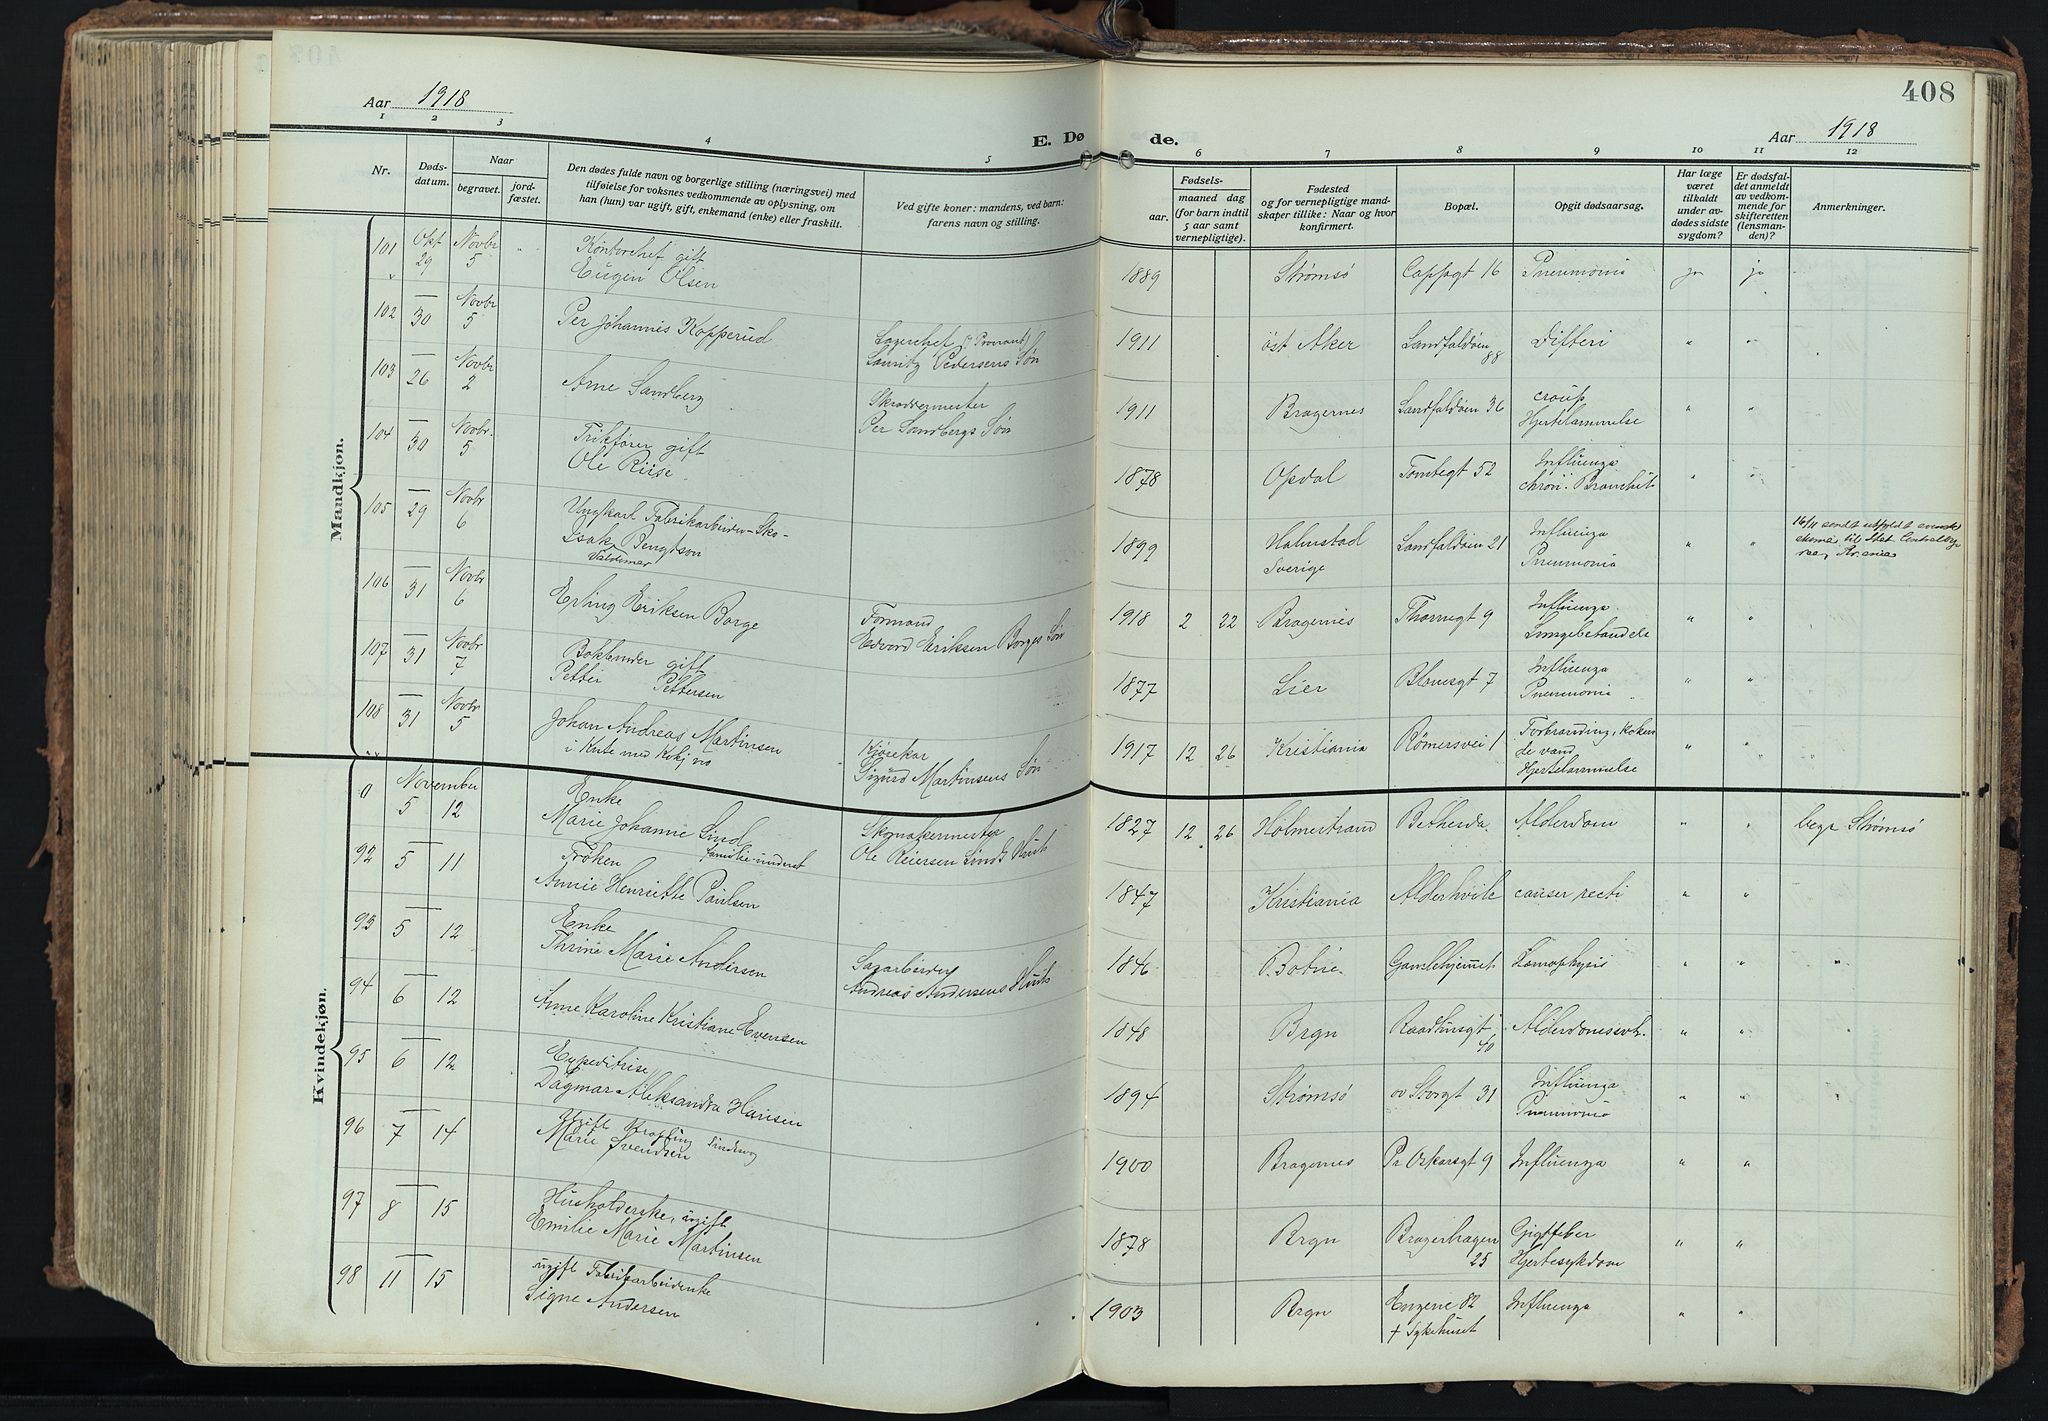 Aar 1918
E. Døde.
408
Aar 1918
1 2 3 4 5 6 7 8 9 10 11 12
Nr.
Døds-
datum.
Naar
begravet.
jord-
fæstet.
Den dødes fulde navn og borgerlige stilling (næringsvei) med
tilføielse for voksnes vedkommende av oplysning, om
han (hun) var ugift, gift, enkemand (enke) eller fraskilt.
Ved gifte koner: mandens, ved barn:
farens navn og stilling.
Fødsels-
aar. maaned dag
(for barn indtil
5 aar samt
vernepligtige).
Fødested
og for vernepligtige mand-
skaper tillike: Naar og hvor
konfirmert.
Bopæl.
Opgit dødsaarsag.
Har læge
været
tilkaldt
under av-
dødes sidste
sygdom?
Er dødsfal-
det anmeldt
av vedkom-
mende for
skifteretten
(lensman-
den)?
Anmerkninger.
Mandkjøn.
101 Okt 29 Novbr 5 " Kontorchef gift
Eugen Olsen
1889 Strømsø Cappsgt 16 Pneumonia ja ja
102 — 30 Novbr 5 Per Johannes Kopperud
Lagerchef (Proviant)
Lauritz Pedersens Søn
1911 Øst Aker Landfaldøen 88 Difteri " "
103 — 26 Novbr 2 Arne Sandberg
Skreddermester
Per Sandbergs Søn
1911 Bragernes Landfaldøen 36 croup
Hjertelammelse " "
104 — 30 Novbr. 5 gift
Ole Riise
1878 Opdal Tomtegt 52 Influenza
chron. Bronchit " "
105 — 29 Novbr 6 Ungkarl Fabrikarbeider-Sko-
Isak Bengtson
Valdemar
1899 Halmstad
Sverige
Landfaldøen 21 Influenza
Pneumonia " "
16/11 sendt utfyldt svensk
til Stat. Central
106 — 31 Novbr 6 Erling Eriksen Borge
Formand
Edvard Eriksen Borges Søn
1918 2 22 Bragernes Thornegt 9 Influenza.
Lungebetændelse " "
107 — 31 Novbr 7 Bokbinder gift
Petter Pettersen
1877 Lier Blomsgt 7 Influenza
Pneumonia " "
108 — 31 Novbr 5 Johan Andreas Martinsen
Kjørekar
Sigurd Martinsens Søn
1917 12 26 Kristiania Rømersvei 1 Forbrænding, koken
de vand,
Hjertelammelse " "
Kvindekjøn.
0 November 5 12 Enke
Marie Johanne Lind
Skomakermester
Ole Reiersen Linds
1827 12 26 Holmestrand Bethesda Alderdom " " begr Strømsø
92 5 11 Frøken
Annie Henriette Paulsen
1847 Kristiania Alderhvile cancer recti " "
93 5 12 Enke
Thrine Marie Andersen
Sagarbeider
Andreas Andersens
1846 Botne Gamlehjemmet Hæmophysis " " "
94 6 12 Anne Karoline Kristiane Evensen
1848 Brgn Raadhusgt 40 Alderdomssvh. " "
95 6 12 Expeditrise
Dagmar Aleksandra Hansen
1894 Strømsø ov Storgt 31 Influenza
Pneumonia " "
96 7 14 Ugift
Marie Svendsen
1900 Bragernes Pr Oskarsgt 9 Influenza " "
97 8 15 Husholderske, ugift
Emilie Marie Martinsen
1878 Brgn Bragerhagen
25
Gigtfeber
Hjertesykdom " "
98 11 15 ugift Fabrikarbeiderske
Signe Andersen
1903 Brgn Engene 82
+ Sykehuset
Influenza " "